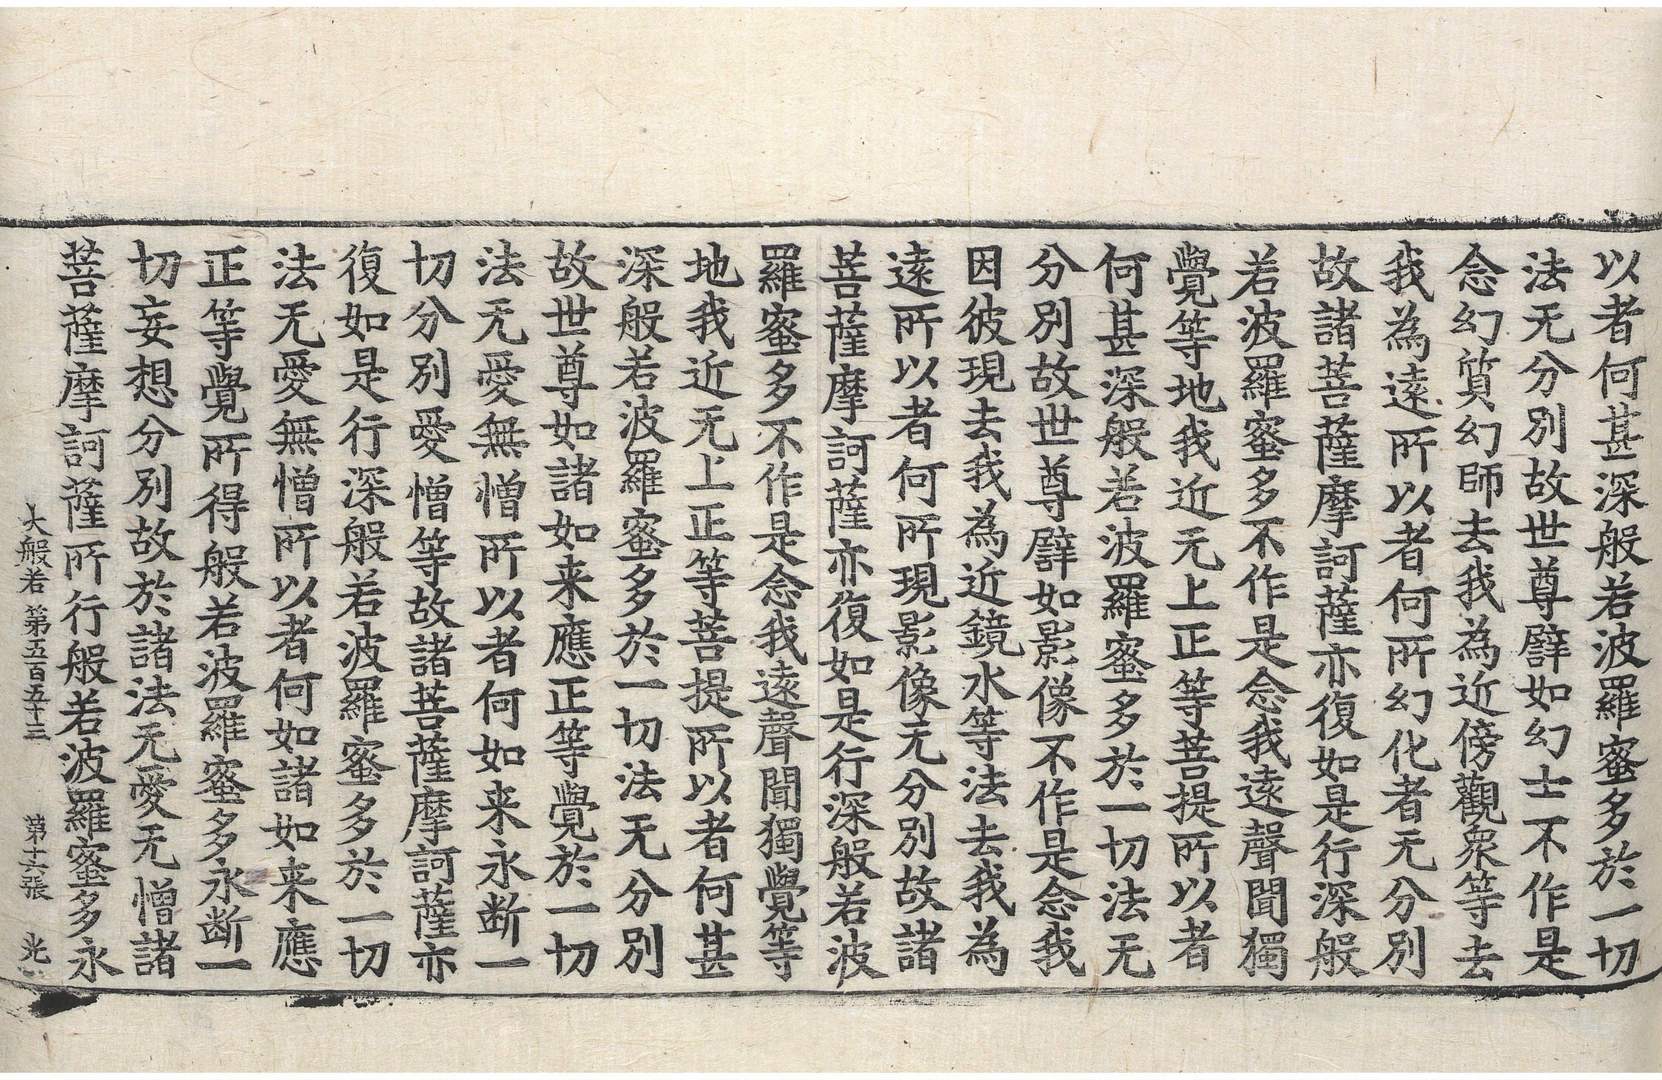 以者何甚深般若波羅蜜多於一切
法无分別故世尊譬如幻士不作是
念幻質幻師去我為近傍觀衆等去
我為遠所以者何所幻化者无分別
故諸菩薩摩訶薩亦復如是行深般
若波羅蜜多不作是念我遠聲聞獨
覺等地我近无上正等菩提所以者
何甚深般若波羅蜜多於一切法无
分別故世尊譬如影像不作是念我
因彼現去我為近鏡水等法去我為
遠所以者何所現影像无分別故諸
菩薩摩訶薩亦復如是行深般若波
羅蜜多不作是念我遠聲聞獨覺等
地我近无上正等菩提所以者何甚
深般若波羅蜜多於一切法无分別
故世尊如諸如来應正等覺於一切
法无愛無憎所以者何如来永断一
切分別愛憎等故諸菩薩摩訶薩亦
復如是行深般若波羅蜜多於一切
法无愛無憎所以者何如諸如来應
正等覺所得般若波羅蜜多永断一
切妄想分別故於諸法无愛无憎諸
菩薩摩訶薩所行般若波羅蜜多永
大般若 第五百五十三 第十六張 光